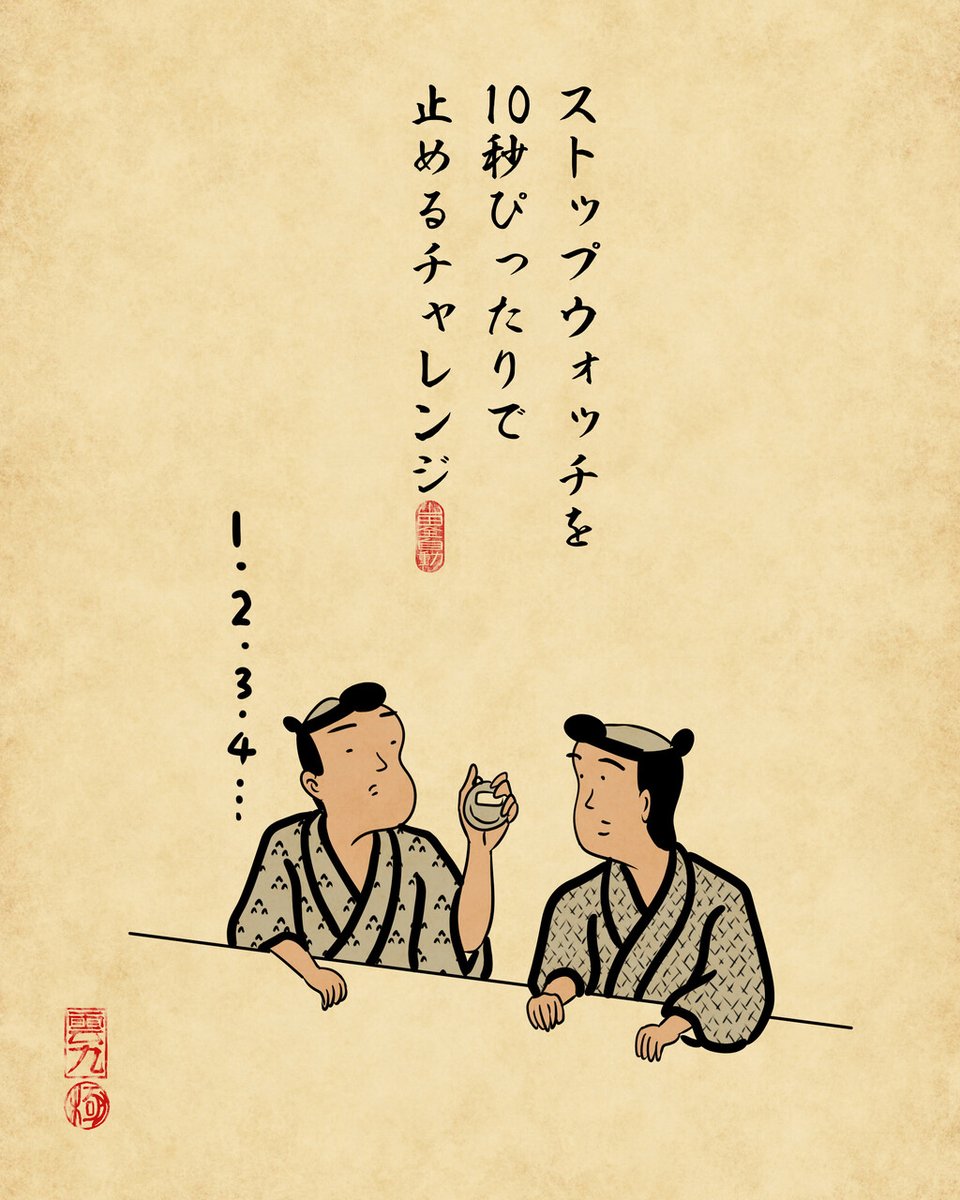 ストップウォッチを
10秒ぴったりで
止めるチャレンジ
1・2・3・4……